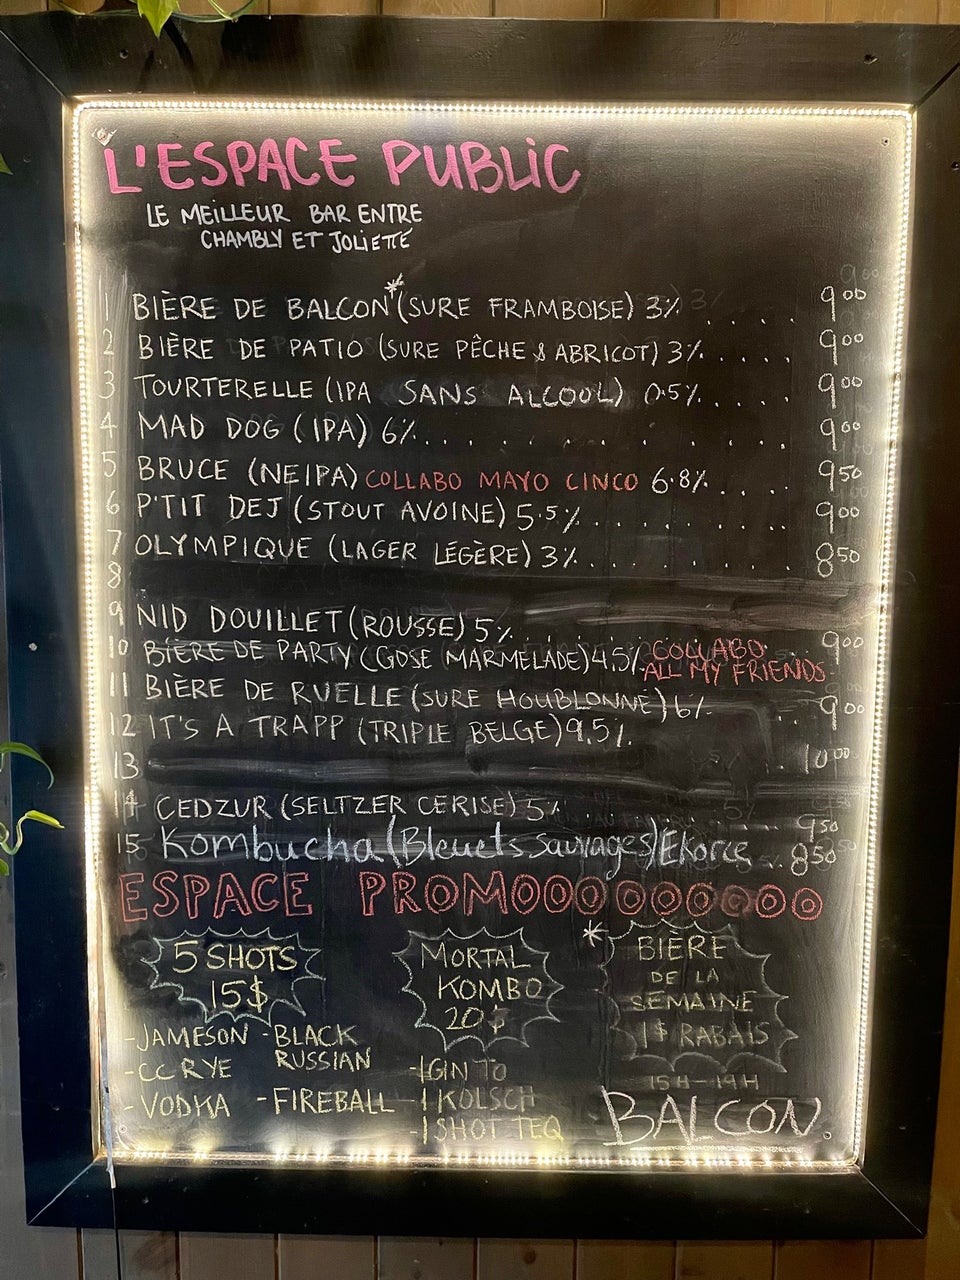 L'ESPACE PUBLIC
LE MEILLEUR BAR ENTRE
CHAMBLY ET JOLIETTE
1 BIÈRE DE BALCON* (SURE FRAMBOISE) 3% . . . . 9.00
2 BIÈRE DE PATIO (SURE PÊCHE & ABRICOT) 3% . . . . . 9.00
3 TOURTERELLE (IPA SANS ALCOOL) 0.5% . . . . . 9.00
4 MAD DOG (IPA) 6% . . . . . . . . . . 9.00
5 BRUCE (NEIPA) COLLABO MAYO CINCO 6.8% . . . . 9.50
6 P'TIT DEJ (STOUT AVOINE) 5.5% . . . . . . . . . 9.00
7 OLYMPIQUE (LAGER LÉGÈRE) 3% . . . . . . . . . 8.50
8
9 NID DOUILLET (ROUSSE) 5% . . . . . . . . . 9.00
10 BIÈRE DE PARTY (GOSE MARMELADE) 4.5% COLLABO
ALL MY FRIENDS
11 BIÈRE DE RUELLE (SURE HOUBLONNÉ) 6% . . 9.00
12 IT'S A TRAPP (TRIPLE BELGE) 9.5% . . 10.00
13
14 CEDZUR (SELTZER CERISE) 5% . . . . . . . . 9.50
15 Kombucha (Bleuets sauvages) Ekorce 8.50
ESPACE PROMOOOOOOOOOO
5 SHOTS
15$
- JAMESON - BLACK RUSSIAN
- CC RYE
- VODKA - FIREBALL
MORTAL
KOMBO
20$
- 1 GIN TO
- 1 KOLSCH
- 1 SHOT TEQ
* BIÈRE
DE LA
SEMAINE
1$ RABAIS
15H - 19H
BALCON